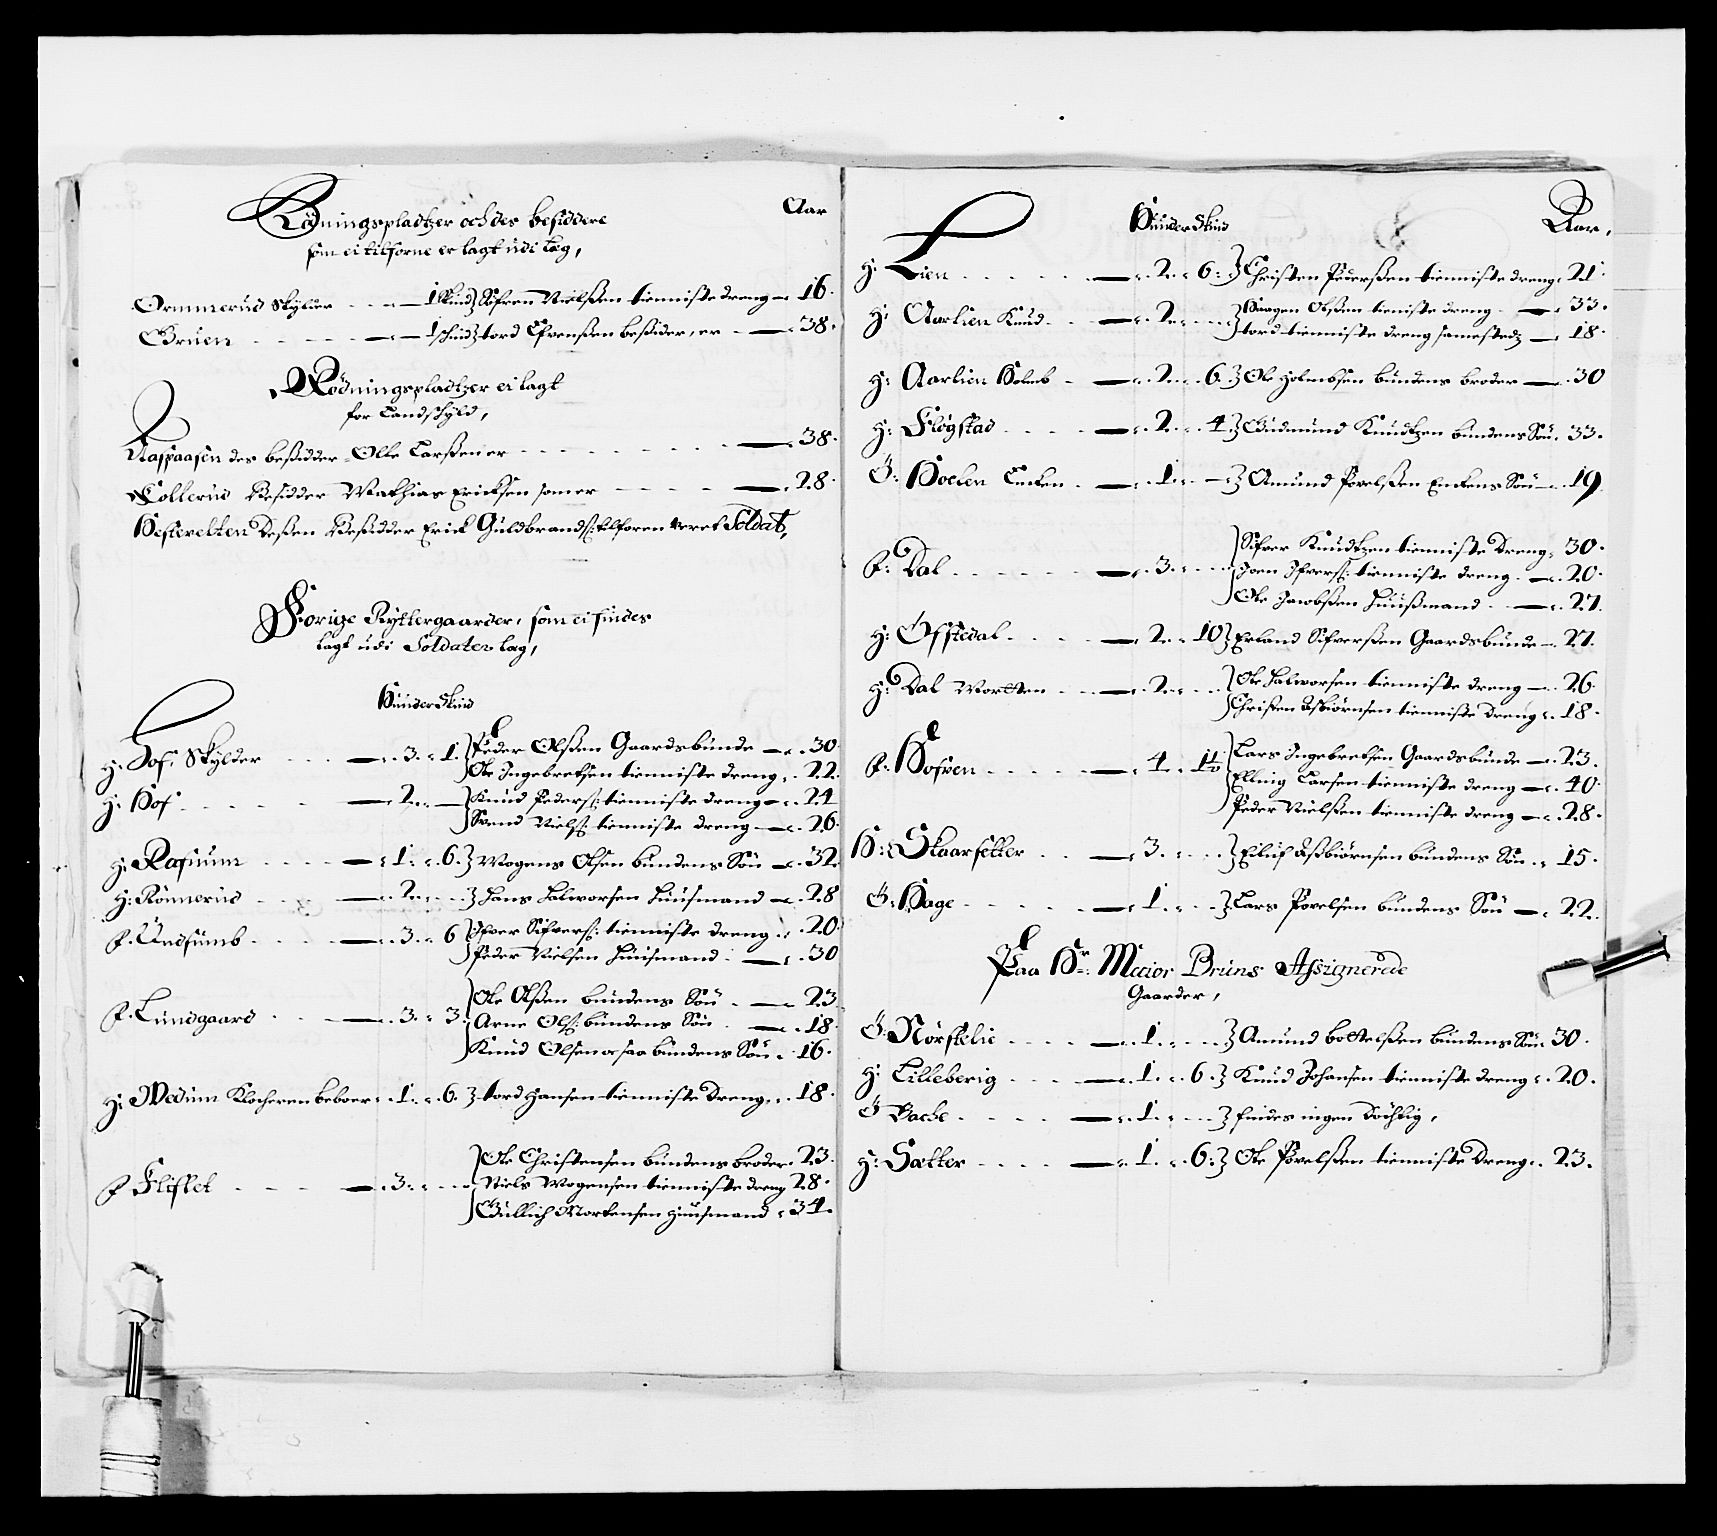 Rödningspladtzer och des besiddere Aar
som ei tilforne er lagt udi læg,
Ormmerud skylder - - - 1 skind Sifren Nielsßen tienniste dreng - 16.
Gruen - - - - - 1 schind tord Efvensßen beßider, er - 38.
Rödningspladtzer ei lagt
for Landschyld,
Aaspaasen des beßidder Olle Larsßen er - - - - - 38.
Collerud Besidder Mathias Ericksen som er - - - - 28.
Hestevelten Desßen Beßidder Erick Guldbrands: tilforen veret Soldat,
Forige Ryttergaarder, som ei findes
lagt udi Soldater læg,
Hunder Skind
H: Hof: Skylder - - - 3. 1. Peder Olsßen Gaardsbunde - 30.
Ole Ingebretsen tienniste dreng. 22.
H: Hof - - - - - 2. - Knud Peders: tienniste dreng - 24
Svend Niels: tienniste dreng - 26.
H: Rafnum - - - - 1. 6. Mogens Olsen bundens Sön - 32.
H: Rönnerud - - - 2. - - Hans Halworsen Huusmand - 28
F. Undsumb - - - - 3. 6 Ifver Sifvers: tienniste dreng. 20.
Peder Nielsen Huusmand - 30
F. Lundgaard - - - 3. 3. Ole Olsßen bundens Sön - 23.
Arne Ols: bundens Sön - 18.
Knud Olsen ocsaa bundens Sön. 16.
H: Medum Klocheren beboer. 1. 6. tord Hansen tienniste Dreng. 18.
F Fliflet - - - 3. - - Ole Christensen bundens broder. 23.
Niels Mogensen tienniste dreng 28.
Gullich Mortensen Huusmand. 34.
Hunder Skind Aar,
H: Lien - - - - - 2. 6: Christen Pedersßen tienniste dreng. 21.
H: Aarlien Knud - - 2. - - Haagen Olsßen tieniste dreng - 33.
tord tienniste dreng samestedz - 18.
H: Aarlien Holmb - 2. 6. Ole Holmbsen bundens broder - 30
H: Flögstad - - - - 2. 4. Gudmund Knudtzen bundens Sön. 33.
Ö: Hoelen Enken - 1. - Amund Povelsßen Enkens Sön - 19.
F: Dal - - - - - 3. - - Sifver Knudtzen tienniste Dreng. 30.
Joen Ifvers: tienniste dreng - 20.
Ole Jacobsßen Huußmand - 27.
H: Öfstedal - - - - 2. 10 Erland Sifversßen Gaardsbunde - 27.
H: Dal Morten - - 2. - - Ole Halworsen tienniste dreng - 26.
Christen Asbiörnsen tienniste Dreng. 18.
F: Hofven - - - - - 4. 1½ Lars Ingebretsen Gaardsbunde - 23.
Elling Larsen tienniste dreng - 40.
Peder Nielsßen tienniste dreng - 28.
H: Skaarsetter - - - 3. - - Eiluf Aßbiörnsen bundens Sön. 15.
Ö: Hage - - - - - 1. - - Lars Povelsen bundens Sön - 22.
Paa Hr: Maior Bruns Assignerede
Gaarder,
Ö: Nörstelie - - - - 1. - - Amund botelsßen bundens Sön. 30.
H: Lilleberig - - - - 1. 6. Knud Johansen tienniste dreng. 20.
Ö Bache - - - - - 1. - - findes ingen döchtig,
H: Sætter - - - - 1. 6: Ole Povelsßen tienniste Dreng. 23.